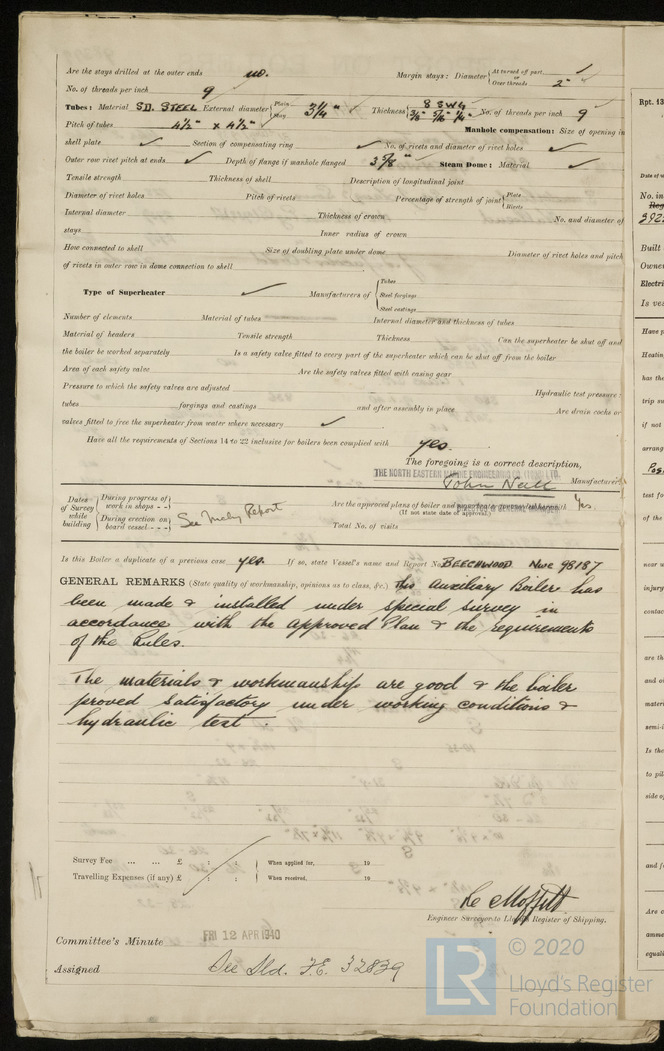 Are the stays drilled at the outer ends no. Margin stays: Diameter { At turned off part, ✓ or Over threads 2" ✓
No. of threads per inch 9 ✓
Tubes: Material SD. STEEL External diameter { Plain Stay 3¼" ✓ Thickness { 8 SWG 3/16" 5/16" ¼" ✓ No. of threads per inch 9 ✓
Pitch of tubes 4½" x 4½" ✓ Manhole compensation: Size of opening in
shell plate ✓ Section of compensating ring ✓ No. of rivets and diameter of rivet holes ✓
Outer row rivet pitch at ends ✓ Depth of flange if manhole flanged 3 5/8" ✓ Steam Dome: Material ✓
Tensile strength Thickness of shell Description of longitudinal joint
Diameter of rivet holes Pitch of rivets Percentage of strength of joint { Plate Rivets
Internal diameter Thickness of crown No. and diameter of
stays Inner radius of crown
How connected to shell Size of doubling plate under dome Diameter of rivet holes and pitch
of rivets in outer row in dome connection to shell
Type of Superheater ✓ Manufacturers of { Tubes Steel forgings Steel castings
Number of elements Material of tubes Internal diameter and thickness of tubes
Material of headers Tensile strength Thickness Can the superheater be shut off and
the boiler be worked separately Is a safety valve fitted to every part of the superheater which can be shut off from the boiler
Area of each safety valve Are the safety valves fitted with easing gear
Pressure to which the safety valves are adjusted Hydraulic test pressure:
tubes forgings and castings and after assembly in place Are drain cocks or
valves fitted to free the superheater from water where necessary ✓
Have all the requirements of Sections 14 to 22 inclusive for boilers been complied with yes.
The foregoing is a correct description,
THE NORTH EASTERN MARINE ENGINEERING CO (1938) LTD.
John Neill Manufacturer.
Dates of Survey while building { During progress of work in shops - - { During erection on board vessel - - - See Mchy Report
Are the approved plans of boiler and forwarded herewith Yes.
(If not state date of approval.)
Total No. of visits
Is this Boiler a duplicate of a previous case yes. If so, state Vessel's name and Report No. BEECHWOOD Nwc 98187
GENERAL REMARKS (State quality of workmanship, opinions as to class, &c.) This Auxiliary Boiler has
been made & installed under special survey in
accordance with the approved Plan & the requirements
of the Rules.
The materials & workmanship are good & the boiler
proved satisfactory under working conditions &
hydraulic test.
Survey Fee ... ... £ : : When applied for, 19
Travelling Expenses (if any) £ : : When received, 19
Moffitt
Engineer Surveyor to Lloyd's Register of Shipping.
Committee's Minute FRI 12 APR 1940
Assigned See Sld. F.E. 32839
© 2020
Lloyd's Register
Foundation
Rpt. 13
Date of w
No. in
Reg
392
Built
Owner
Electri
Is ves
Have p
Heatin
has the
trip su
if not
arrang
Pos
test fo
of the
near w
injury
contac
are th
and oi
materi
semi-i
Is the
to pil
side o
and f
Are a
amme
equali